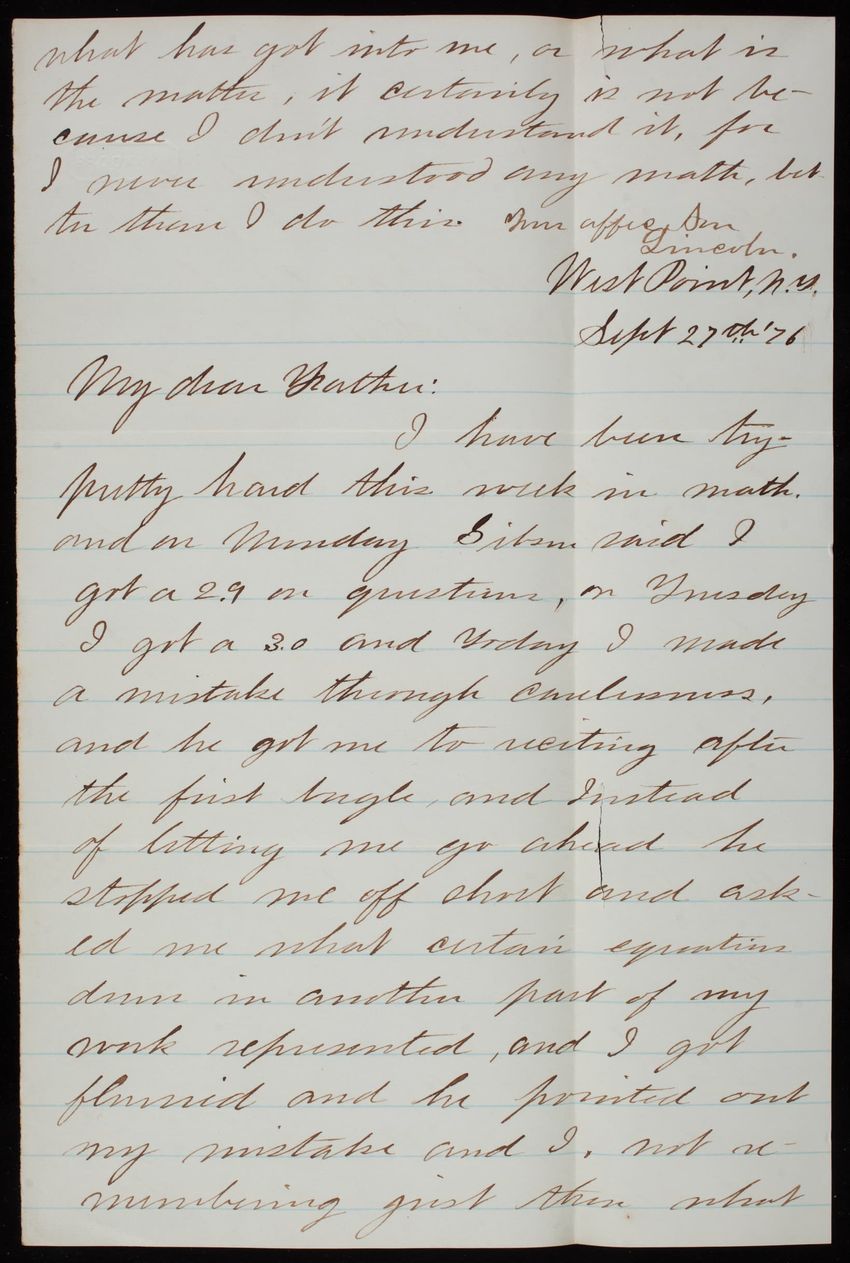 what has got into me, or what is
the matter, it certainly is not be-
cause I dn't understand it, for
I never understood any math, bet
ter than I do this. Your affec. Son
Lincoln.
West Point, N.Y.
Sept 27th '76
My dear Father:
I have been try-
pretty hard this week in math.
and on Monday Gibson said I
got a 2.9 on questions, on Tuesday
I got a 3.0 and today I made
a mistake through carelessness,
and he got me to reciting after
the first bugle, and instead
of letting me go ahead he
stopped me off short and ask-
ed me what certain equations
down in another part of my
work represented, and I got
and he pointed out
my mistake and I, not re-
membering just then what